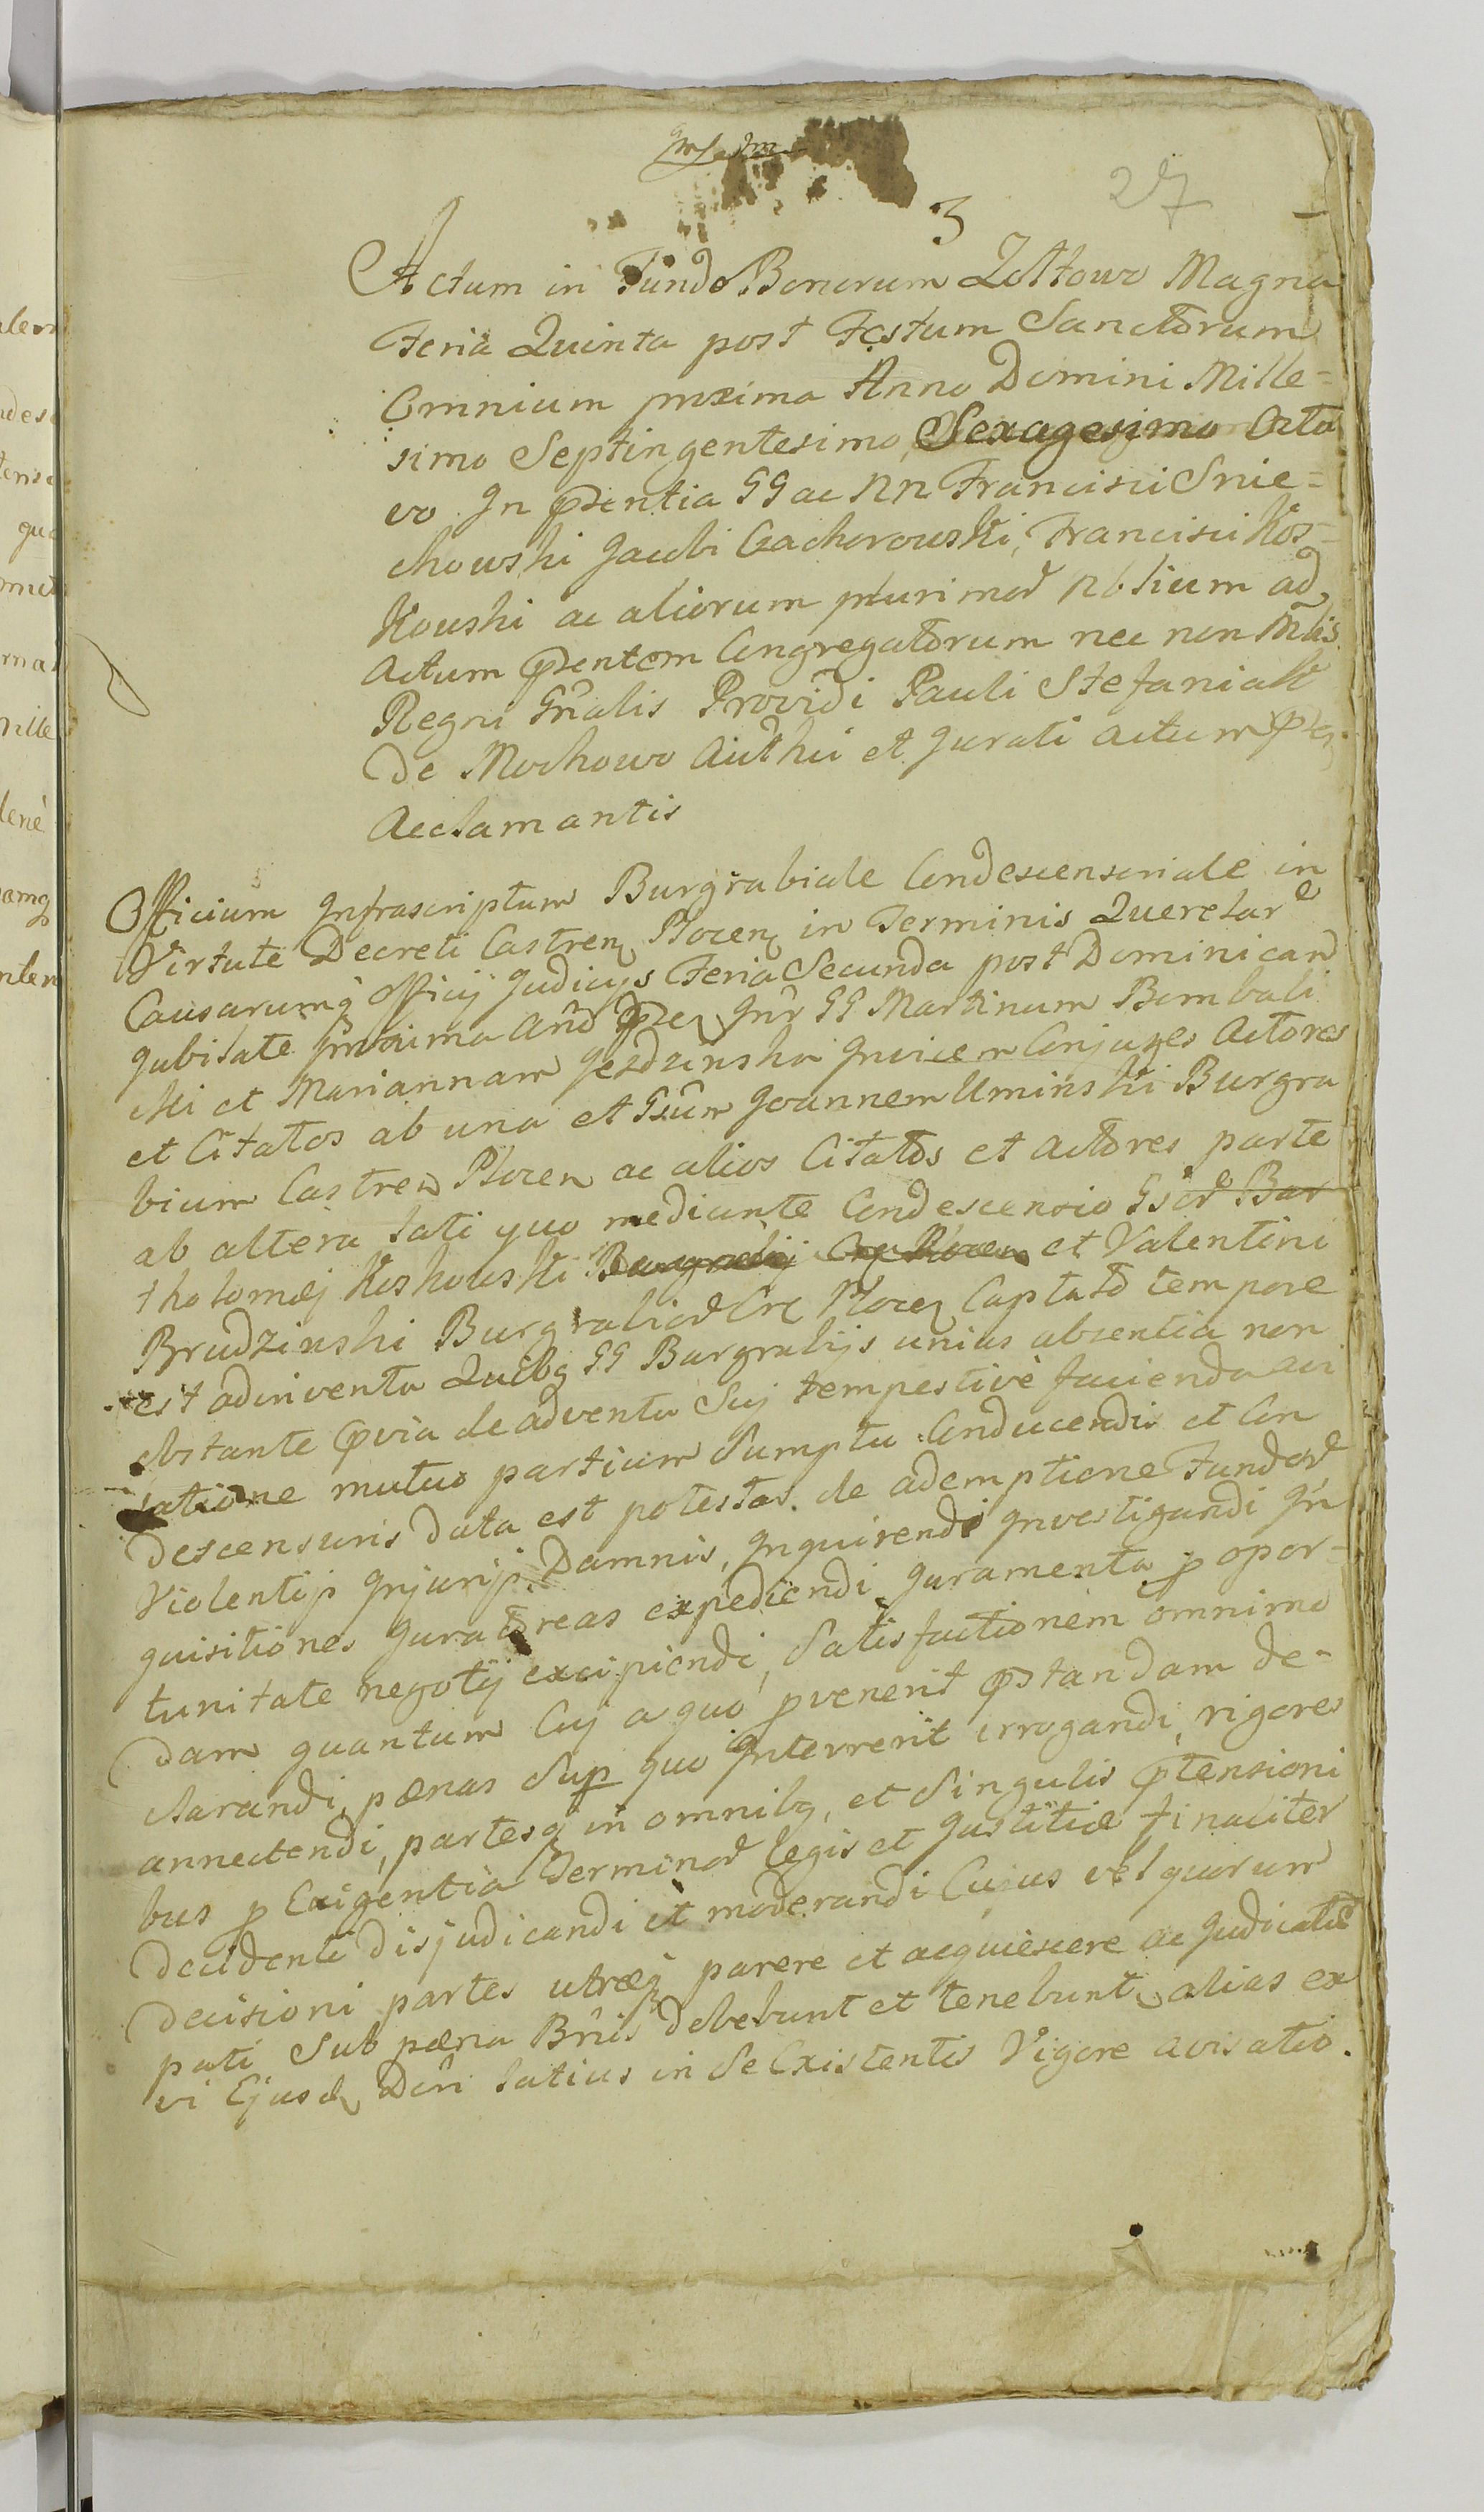 27
3
Actum in Fundo Bonorum Zołtowo Magna
Feria Quinta post Festum Sanctorum
Omnium proxima Anno Domini Mille=
simo Septingentesimo Sexagesimo Octa
vo. In pntia GG ac NN Francisci Snie=
chowski Jacobi Czachorowski, Francisci Kos=
kowski ac aliorum plurimor Nbilium ad
Actum pntem Congregatorum nec non Mris
Regni Gnalis Providi Pauli Stefaniak
de Mochowo Authci et Jurati Actum
Acclamantis
Officium Infrascriptum Burgrabiale Condescensoriale in
Virtute Decreti Castren Plocen in Terminis Querelar
Causarumq Officij Judicijs Feria Secunda post Dominicam
Jubilate proxima Ano Inr GG Martinum Bombali
cki et Mariannam Jezdzinska Invicem Conjuges Actores
et Citatos ab una et Gsum Joannem Uminski Burgra
bium Castren Plocen ac alios Citatos et Actores parte
ab altera lati quo mediante Condescensio Gsor Bar
tholomej Koskowski Burgrabij Plocen et Valentini
Brudzinski Burgrabior Cre Plocen Captato tempore
est adinventa Quibq GG Burgrabijs unius absentia non
obstante pvia de adventu Suj tempestive facienda avi
satione mutuo partium Sumptu Conducendis et Con
descensuris data est potestas de ademptione Fundor
Violentijs Injurijs Damnis, Inquirendi Investigandi In
quisitiones Juratoreas expediendi Juramenta p opor=
tunitate negotij excipiendi, Satisfactionem omnimo
dam quantum Cuj a quo pvenerit pstandam de=
clarandi, pænas Sup quo Intevrerit irrogandi, rigores
annectendi, partesq in omnibq, et Singulis ptensioni
bus p Exigentia Terminor legis et Justitiæ finaliter
decidenti disjudicandi et moderandi Cujus vel quorum
decisioni partes utræq parere et acquiescere ac Judicatu
pati Sub pæna Bnis debebunt et tenebunt alias ex
vi Ejusd Dcri latius in se Existentis Vigore avisatio.